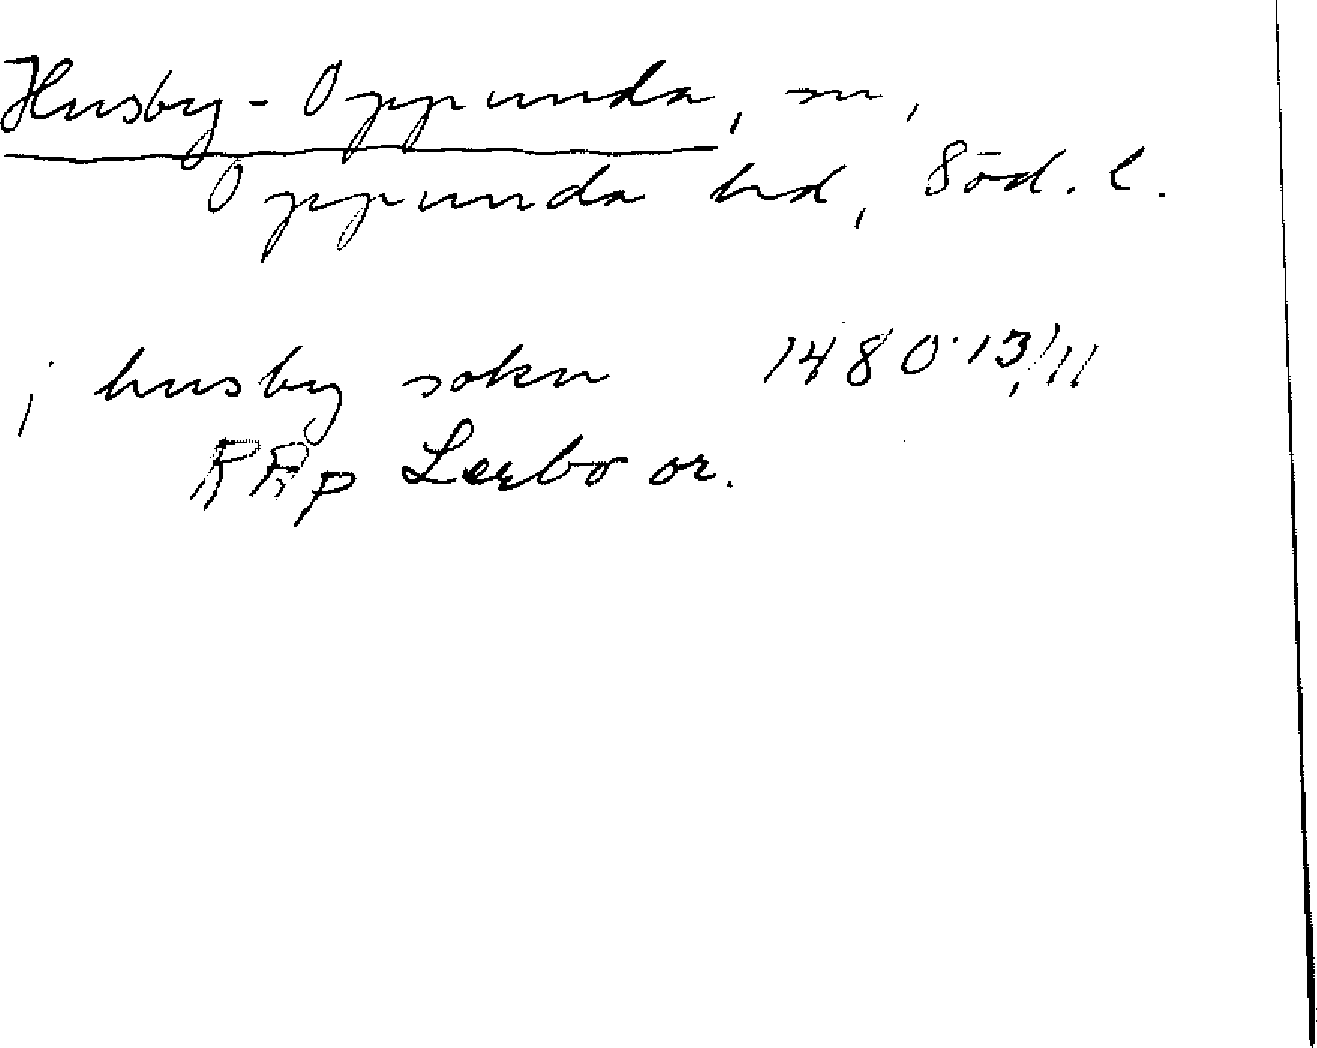 Husby-Oppunda, sn,
Oppunda hd, Söd. l.
j husby sokn 1480 13/11
RAp Lerbo or.